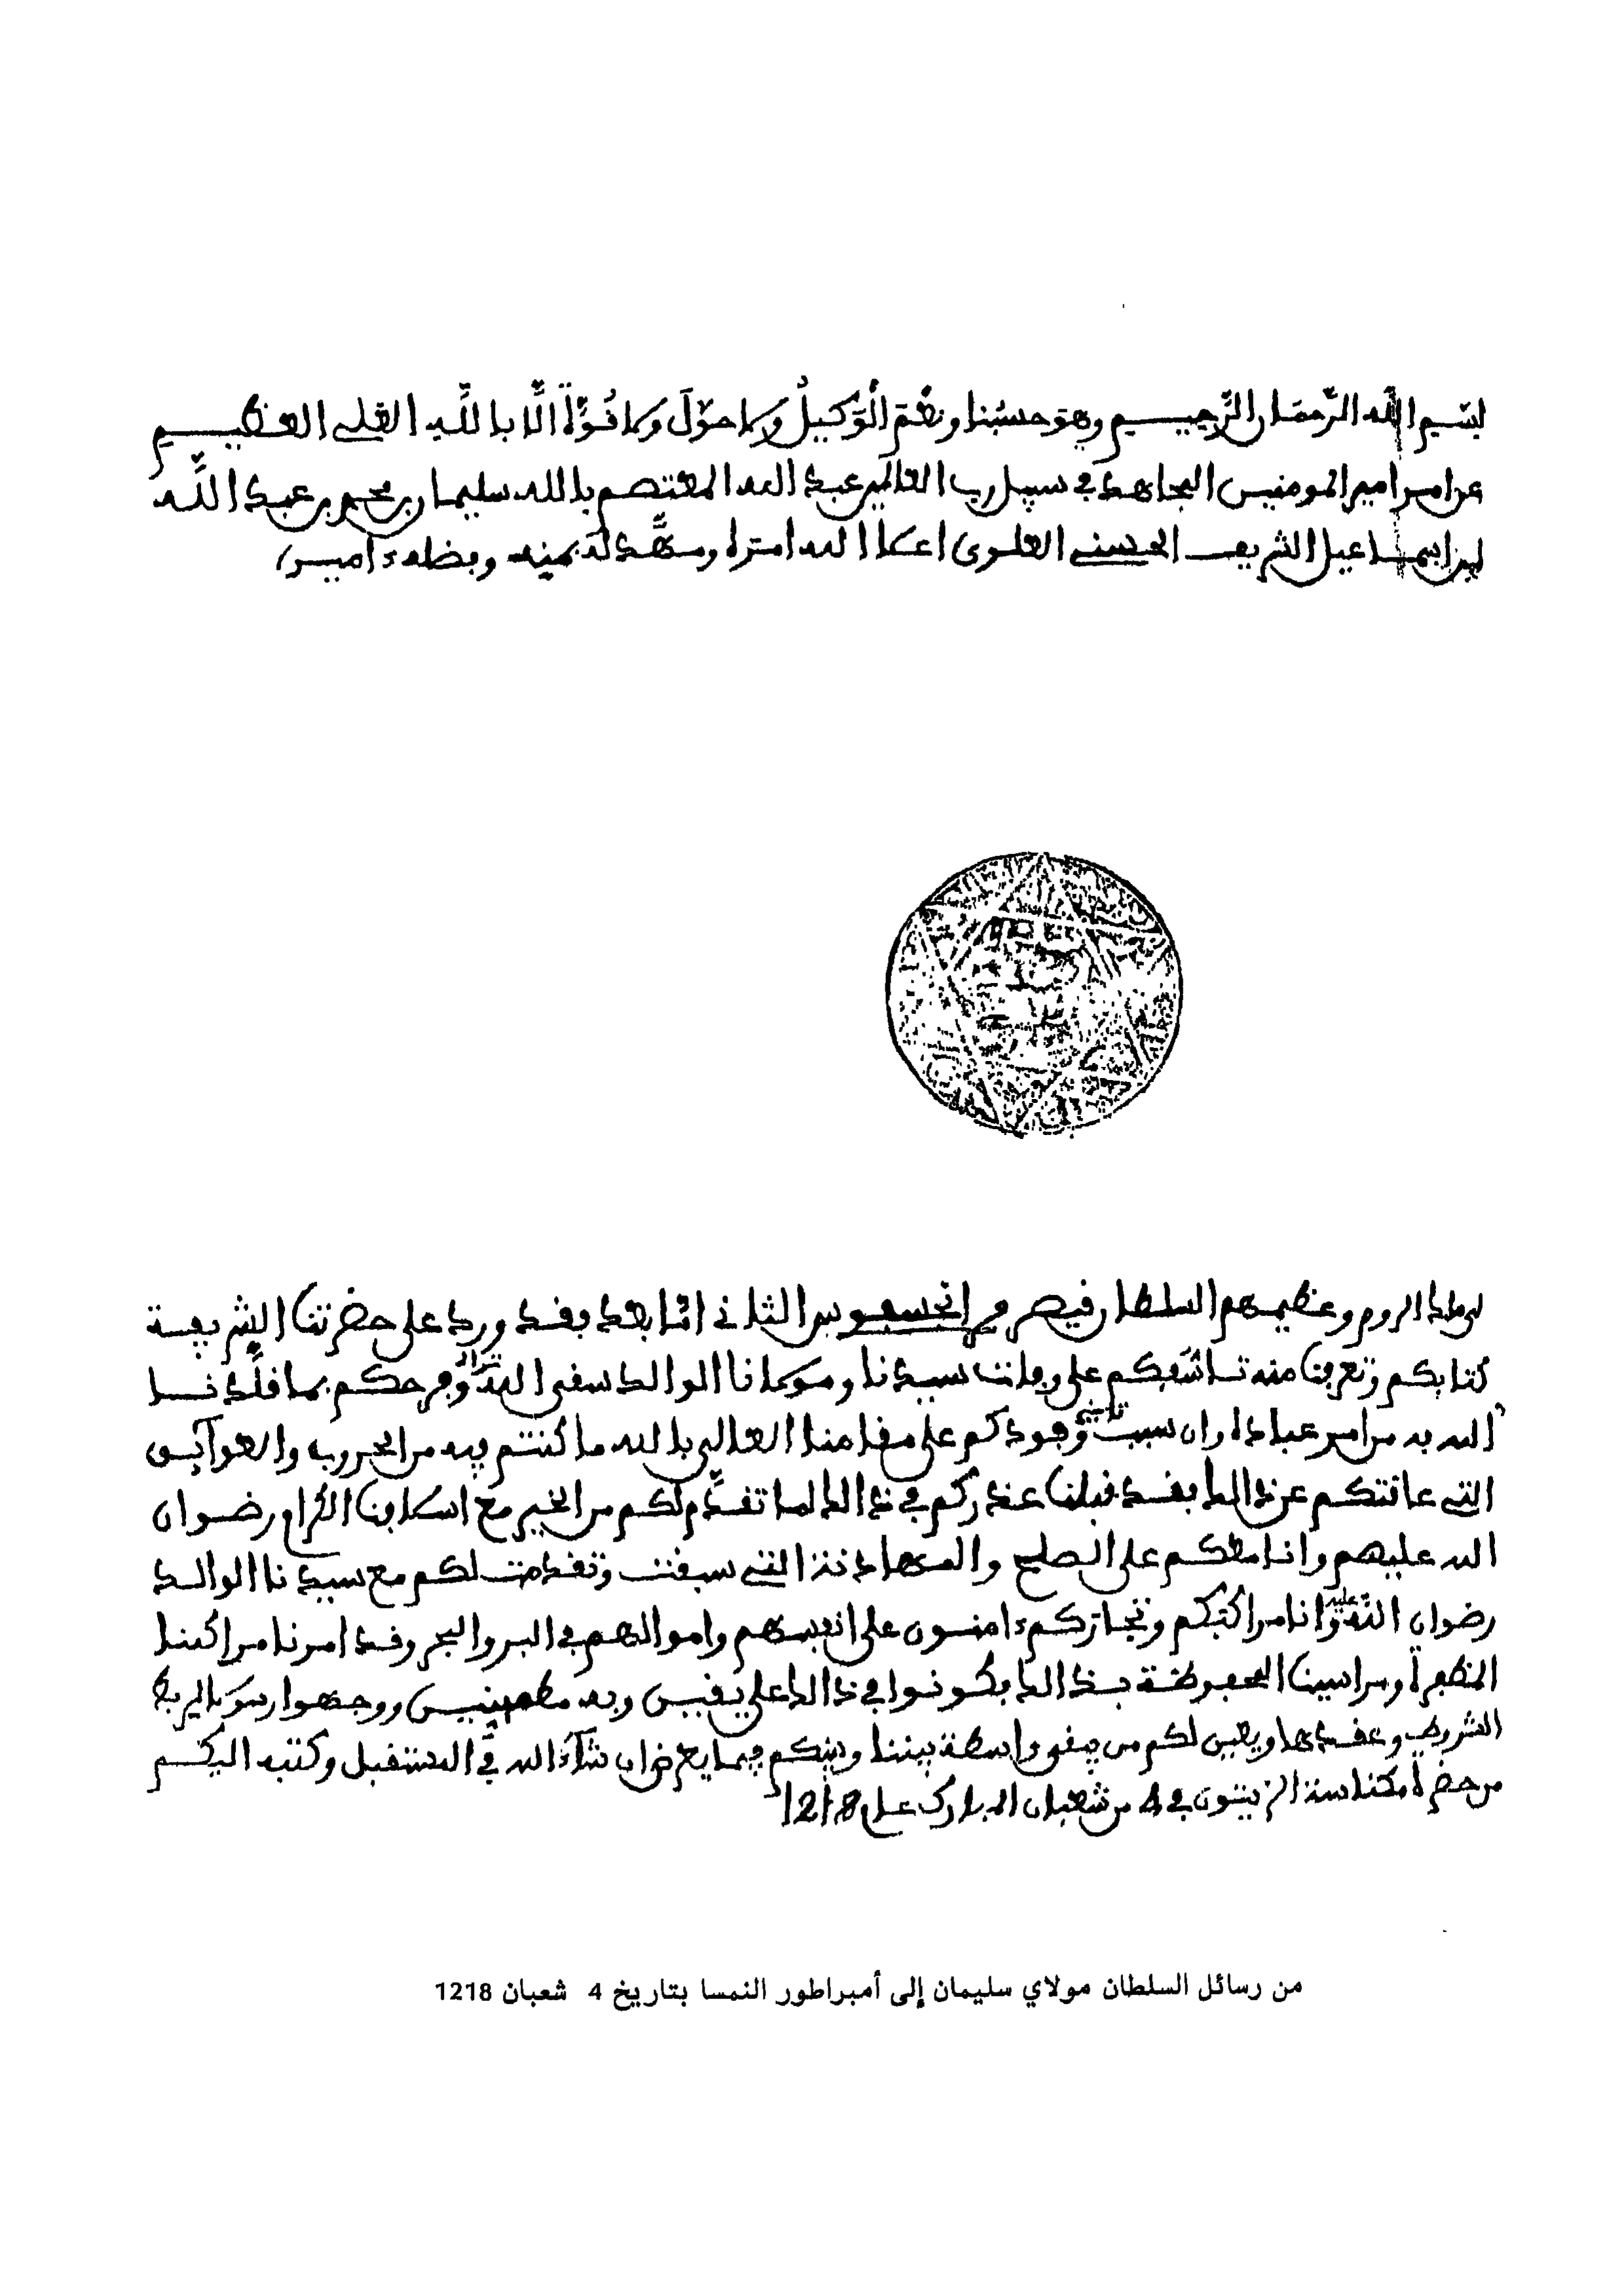 بسم الله الرحمان الرحيم وهو حسبنا ونعم الوكيل ولا حول ولا قوة الا بالله العلي العظيم
عن امر امير المومنين المجاهد في سبيل رب العالمين عبد الله المعتصم بالله سليمان بن محمد بن عبد الله
بن اسماعيل الشريف الحسني العلوي اعلا الله امره بمنه وبضله ءامين
الروم وعظيمهم السلطان فيصر الثاني اما بعد بفد ورد على حضرتنا الشريبة
كتابكم وتعربنا منه تاسبكم على وبات سيدنا ومولانا الوالد سفى الله ثراه وبرحكم بما فلدنا
الله به من امر عباده وان سبب تاخير وبودكم على مفامنا العالي بالله ما كنتم بيه من الحروب والعوآيق
التي عافتكم عن ذالك بفد فبلنا عذركم في ذالك لما تفدم لكم من الخير مع اسلابنا الكرام رضوان
الله عليهم وانا معكم على الصلح والمهادنة التي سبفت وتفدمت لكم مع سيدنا الوالد
رضوان الله عليه وان مراكبكم وتجاركم ءامنون على انبسهم واموالهم في البر والبحر وفد امرنا مراكبنا
المظبرة ومراسينا المحبوظة بذالك بكونوا في ذالك على يفين وبه مطمينين ووجهوا
الشروط وعفدها ويعين لكم من يبفى واسطة بيننا وبينكم بيما يعرض ان شآء الله في المستفبل وكتبه اليكم
من حضرة مكناسة الزيتون في 4 من شعبان المبارك عام 1218
من رسائل السلطان مولاي سليمان إلى أمبراطور النمسا بتاريخ 4 شعبان 1218